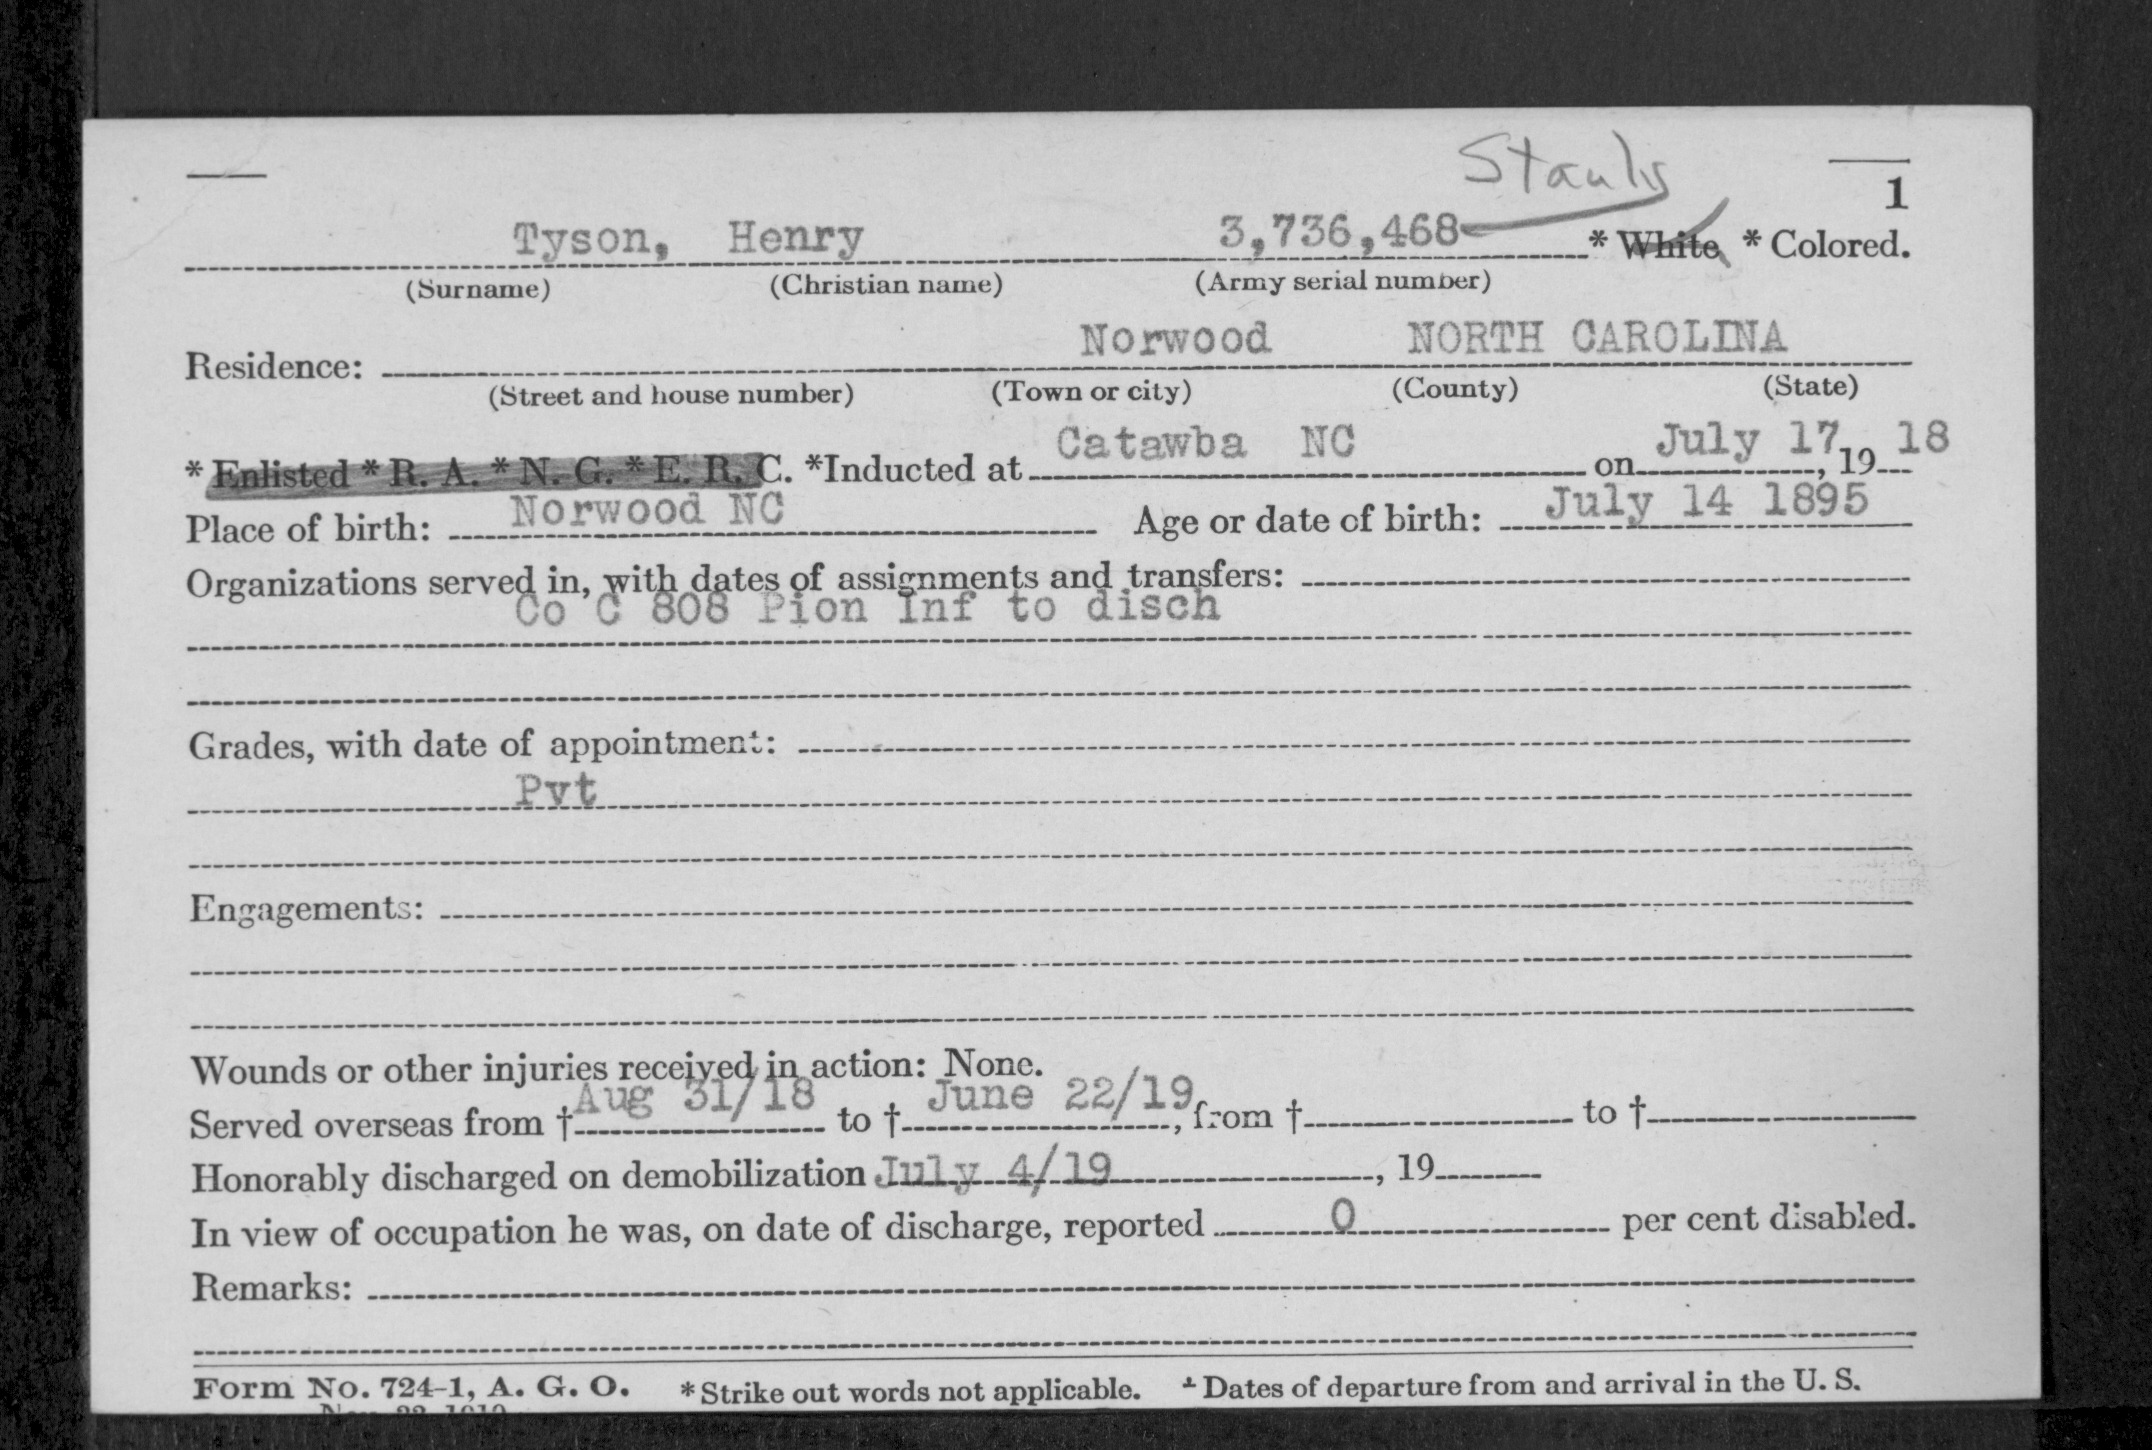 Stanly
1
Tyson, Henry 3,736,468 * White, * Colored.
(Surname) (Christian name) (Army serial number)
Norwood NORTH CAROLINA
Residence:
(Street and house number) (Town or city) (County) (State)
* Enlisted * R. A. * N. G. * E. R. C. *Inducted at Catawba NC on July 17, 19 18
Place of birth: Norwood NC Age or date of birth: July 14 1895
Organizations served in, with dates of assignments and transfers:
Co C 808 Pion Inf to disch
Grades, with date of appointment:
Pvt
Engagements:
Wounds or other injuries received in action: None.
Served overseas from † Aug 31/18 to † June 22/19, from † to †
Honorably discharged on demobilization July 4/19, 19
In view of occupation he was, on date of discharge, reported 0 per cent disabled.
Remarks:
Form No. 724-1, A. G. O. * Strike out words not applicable. † Dates of departure from and arrival in the U. S.